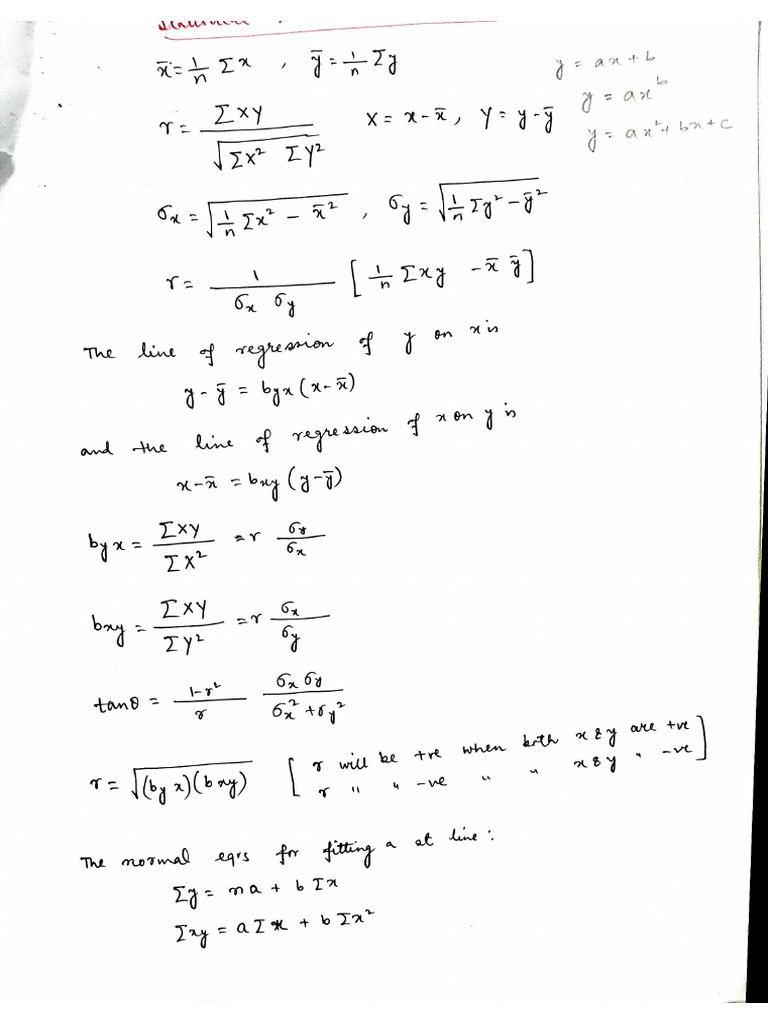 x̄ = 1/n Σx , ȳ = 1/n Σy
y = ax + b
y = ax^b
y = ax² + bx + c
r = ΣXY / √(ΣX² ΣY²) X = x - x̄, Y = y - ȳ
σx = √(1/n Σx² - x̄²) , σy = √(1/n Σy² - ȳ²)
r = 1/(σx σy) [1/n Σxy - x̄ ȳ]
The line of regression of y on x is
y - ȳ = byx (x - x̄)
and the line of regression of x on y is
x - x̄ = bxy (y - ȳ)
byx = ΣXY / ΣX² = r σy/σx
bxy = ΣXY / ΣY² = r σx/σy
tanθ = (1-r²)/r σxσy / (σx² + σy²)
r = √((byx)(bxy)) [r will be +ve when both x & y are +ve
r " " -ve " " x & y " -ve]
The normal eqns for fitting a st line:
Σy = na + bΣx
Σxy = aΣx + bΣx²